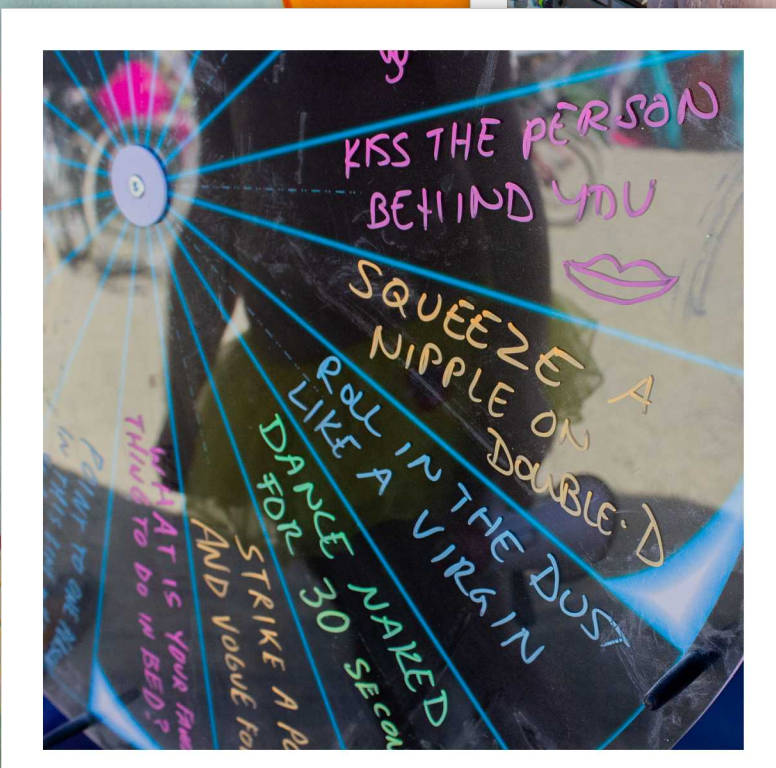 KISS THE PERSON
BEHIND YOU
SQUEEZE A
NIPPLE ON
DOUBLE-D
ROLL IN THE DUST
LIKE A VIRGIN
DANCE NAKED
FOR 30 SECON
STRIKE A PO
AND VOGUE FO
WHAT IS YOUR FAV
THING TO DO IN BED?
POINT TO ONE
IN THIS